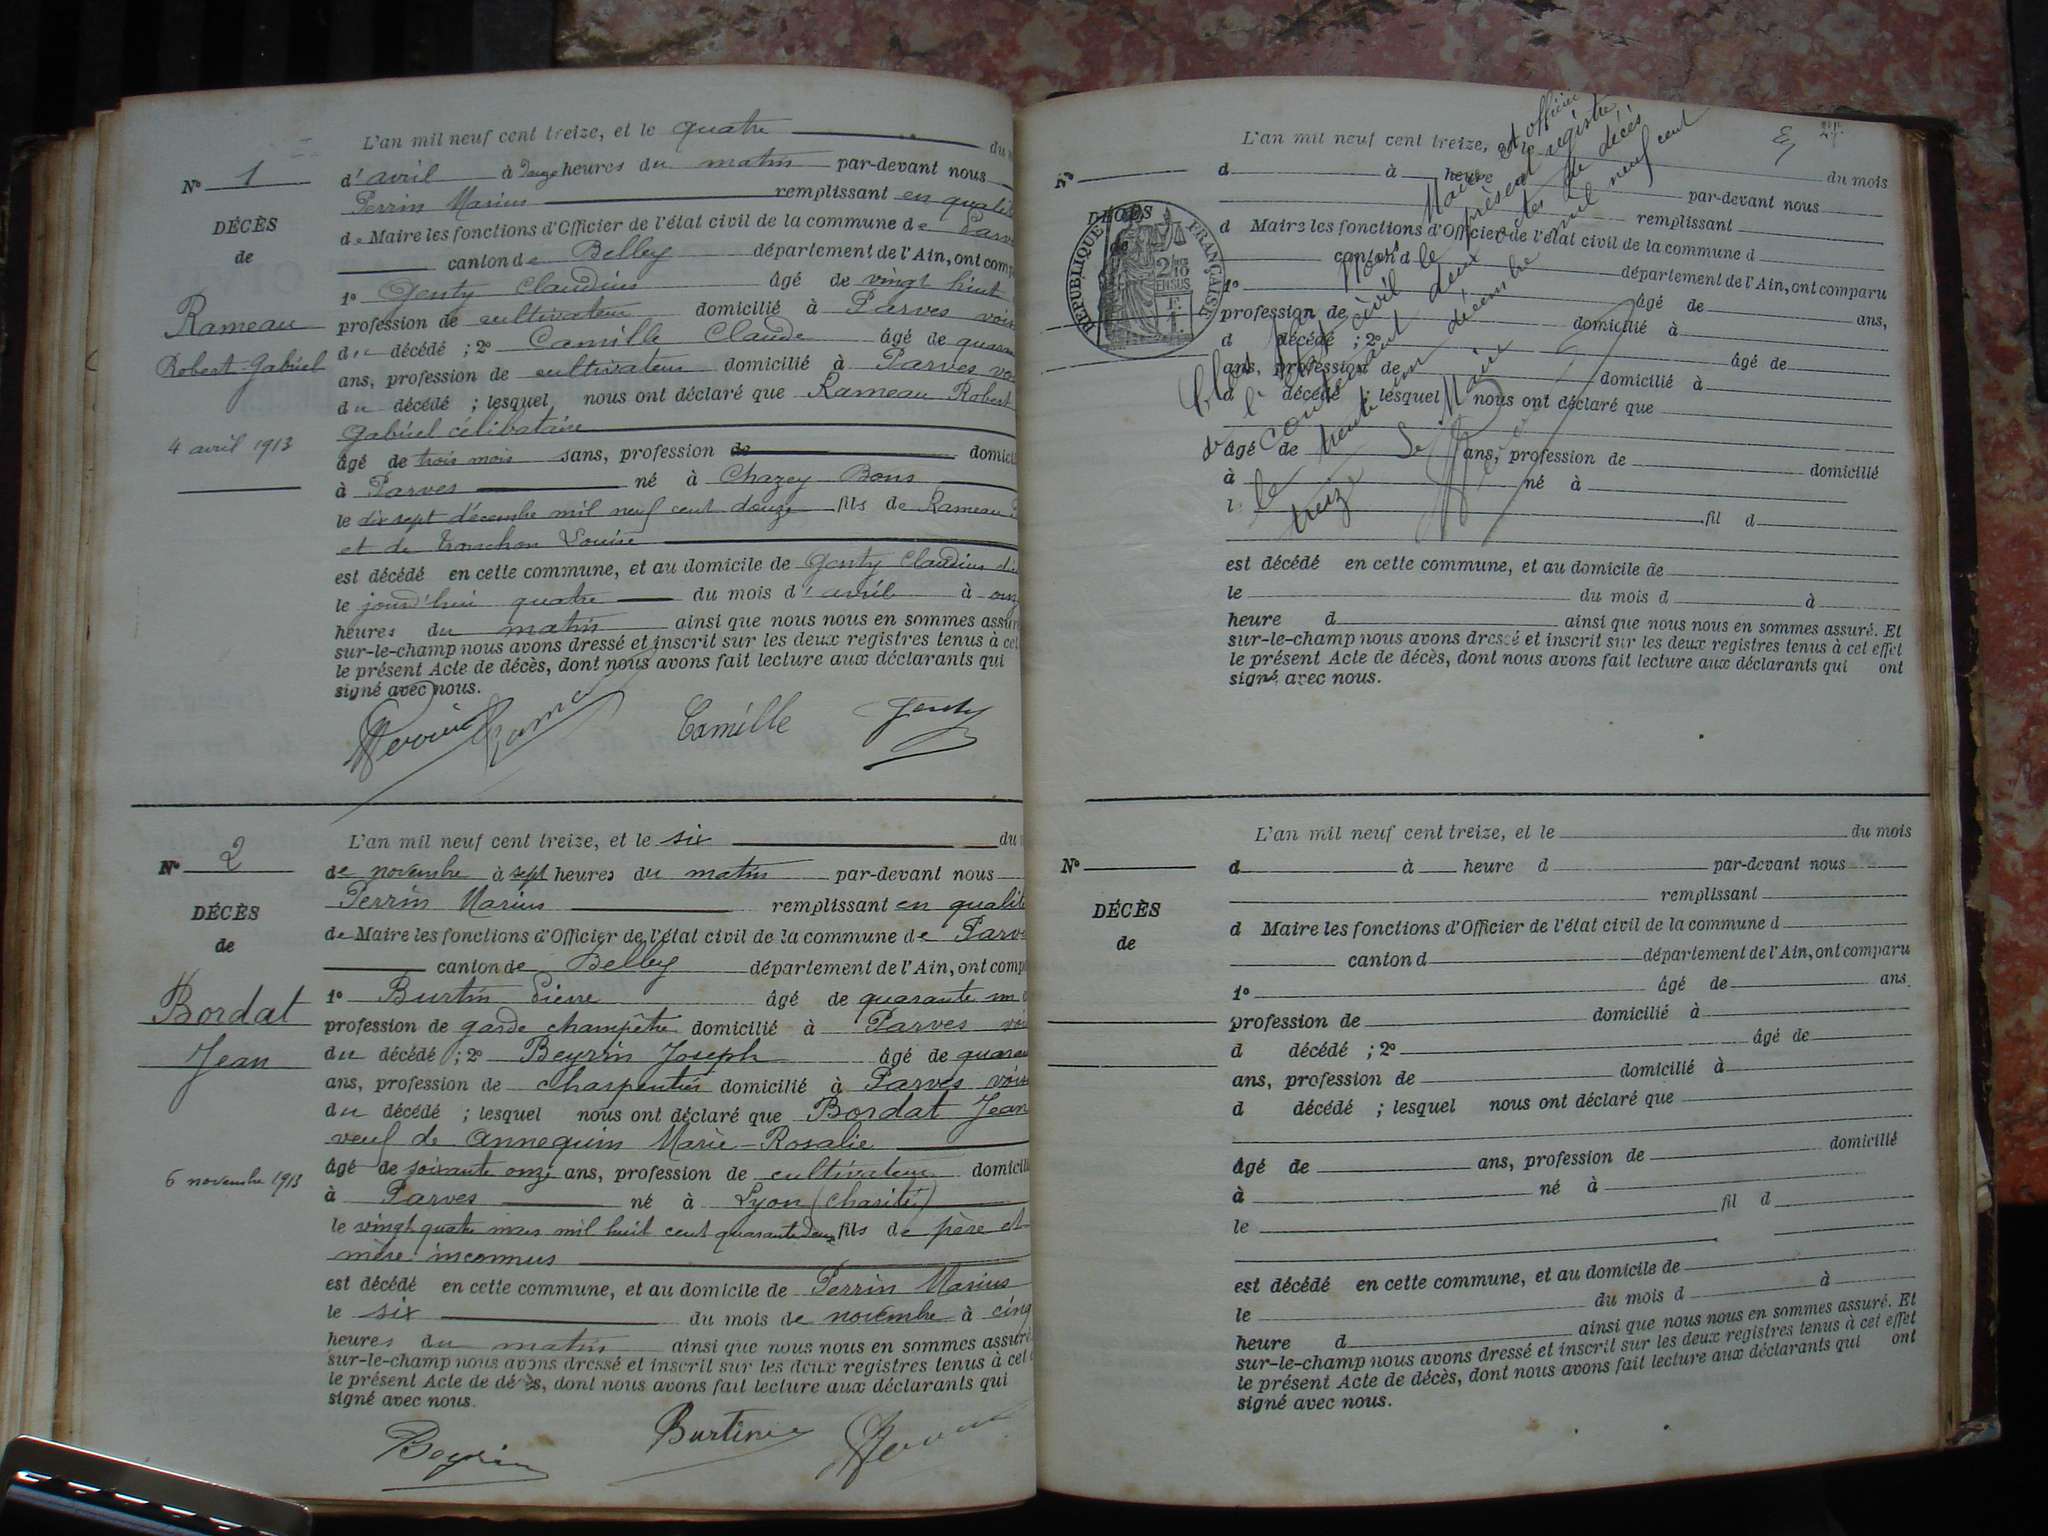 L'an mil neuf cent treize, et le quatre du
N° 1
d'avril à Douze heures du matin par-devant nous
Perrin Marius remplissant en qualité
DÉCÈS
de Maire les fonctions d'Officier de l'état civil de la commune de Parves
de
canton de Belley département de l'Ain, ont comp
1° Genty Claudius âgé de vingt huit
Rameau
profession de cultivateur domicilié à Parves vois
Robert-Gabriel
du décédé ; 2° Camille Claude âgé de quaran
ans, profession de cultivateur domicilié à Parves vo
du décédé ; lesquel nous ont déclaré que Rameau Robert
Gabriel célibataire
4 avril 1913
âgé de trois mois sans, profession de domici
à Parves né à Chazey Bons
le dix sept décembre mil neuf cent douze fils de Rameau
et de Tronchon Louise
est décédé en cette commune, et au domicile de Genty Claudius
le jourd'hui quatre du mois d'avril à onze
heures du matin ainsi que nous nous en sommes assuré
sur-le-champ nous avons dressé et inscrit sur les deux registres tenus à cet
le présent Acte de décès, dont nous avons fait lecture aux déclarants qui
signé avec nous.
Perrin Camille Genty
L'an mil neuf cent treize, et le six du
N° 2
de novembre à sept heures du matin par-devant nous
Perrin Marius remplissant en qualité
DÉCÈS
de Maire les fonctions d'Officier de l'état civil de la commune de Parve
de
canton de Belley département de l'Ain, ont comp
Bordat
1° Burtin Pierre âgé de quarante un
profession de garde champêtre domicilié à Parves voi
Jean
du décédé ; 2° Beyrin Joseph âgé de quaran
ans, profession de charpentier domicilié à Parves vois
du décédé ; lesquel nous ont déclaré que Bordat Jean
veuf de Annequin Marie-Rosalie
6 novembre 1913
âgé de soixante onze ans, profession de cultivateur domicili
à Parves né à Lyon (Charité)
le vingt quatre mars mil huit cent quarante deux fils de père et
mère inconnus
est décédé en cette commune, et au domicile de Perrin Marius
le six du mois de novembre à cinq
heures du matin ainsi que nous nous en sommes assuré
sur-le-champ nous avons dressé et inscrit sur les deux registres tenus à cet
le présent Acte de décès, dont nous avons fait lecture aux déclarants qui
signé avec nous.
Beyrin Burtin Perrin
L'an mil neuf cent treize, et le
du mois
N°
d à heure par-devant nous
remplissant
DÉCÈS
d Maire les fonctions d'Officier de l'état civil de la commune d
de
canton d département de l'Ain, ont comparu
RÉPUBLIQUE FRANÇAISE
2/10 EN SUS
1° âgé de ans,
profession de domicilié à
d décédé ; 2° âgé de
ans, profession de domicilié à
d décédé ; lesquel nous ont déclaré que
âgé de ans, profession de domicilié
à né à
l fil d
est décédé en cette commune, et au domicile de
le du mois d à
heure d ainsi que nous nous en sommes assuré. Et
sur-le-champ nous avons dressé et inscrit sur les deux registres tenus à cet effet
le présent Acte de décès, dont nous avons fait lecture aux déclarants qui ont
signé avec nous.
Clos par Nous Maire et officier
de l'état civil le présent registre
contenant deux actes de décès
le trente un décembre mil neuf cent
treize Le Maire
L'an mil neuf cent treize, et le du mois
N°
d à heure d par-devant nous
remplissant
DÉCÈS
d Maire les fonctions d'Officier de l'état civil de la commune d
de
canton d département de l'Ain, ont comparu
1° âgé de ans
profession de domicilié à
d décédé ; 2° âgé de
ans, profession de domicilié à
d décédé ; lesquel nous ont déclaré que
âgé de ans, profession de domicilié
à né à
le fil d
est décédé en cette commune, et au domicile de
le du mois d à
heure d ainsi que nous nous en sommes assuré. Et
sur-le-champ nous avons dressé et inscrit sur les deux registres tenus à cet effet
le présent Acte de décès, dont nous avons fait lecture aux déclarants qui ont
signé avec nous.